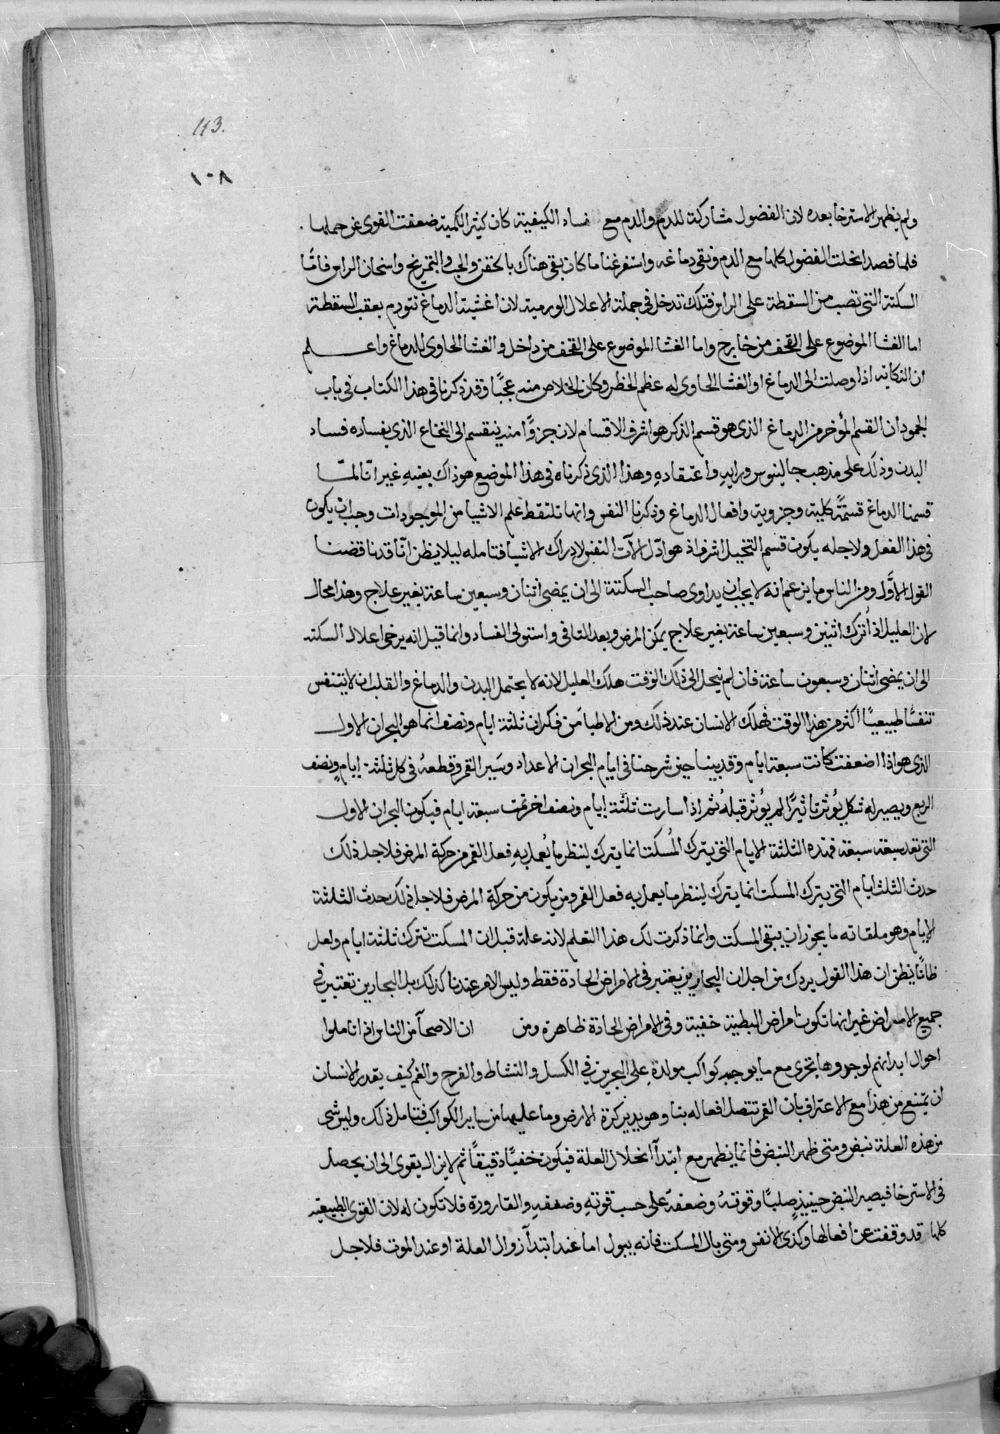 113.
١٠٨
ولم يظهر الاسترخا بعده لان الفضول مشاركة للدم والدم مع فساد الكيفية كان كثير الكمية ضعفت القوى عن حملها .
فلما فصد انحلت الفضول كلها مع الدم ونقى دماغه واستفرغنا ما كان بقى هناك بالحقن والحب والتمريخ واسخان الراس فاما
السكتة التى تصب من السقطة على الراس فتلك تدخل فى جملة الاعلال الورمية لان اغشية الدماغ تتورم بعقب السقطة
اما الغشا الموضوع على القحف من خارج واما الغشا الموضوع على القحف من داخل والغشا الحاوى للدماغ واعلم
ان النكاية اذا وصلت الى الدماغ او الغشا الحاوى له عظم الخطر وكان الخلاص منه عجبًا وقد ذكرنا فى هذا الكتاب فى باب
الجمود ان القسم المؤخر من الدماغ الذى هو قسم الذكر هو اشرف الاقسام لان جزوًا منه ينقسم الى النخاع الذى بفساده فساد
البدن وذلك على مذهب جالينوس ورايه واعتقاده وهذا الذى ذكرناه فى هذا الموضع هو ذاك بعينه غير انّا لمّا
قسمنا الدماغ قسمةً كلية وجزوية وافعال الدماغ وذكرنا النفس وانها تلتقط علم الاشيا من الموجودات وجب ان يكون
فى هذا الفعل ولاجله يكون قسم التخيل اشرف اذ هو اول الآت النفس لادراك الاشيا فتامله ليلا يظن انّا قد ناقضنا
القول الاوّل ومن الناس ما يزعم انه لا يجب ان يداوى صاحب السكتة الى ان يمضى اثنتان وسبعين ساعة بغير علاج وهذا محال
لان العليل اذا تُرك اثنين وسبعين ساعة بغير علاج يمكن المرض وبعد التلافى واستولى الفساد وانما قيل انه يرخوا علال السكتة
الى ان يمضى اثنتان وسبعون ساعة فان لم ينحل الى ذلك الوقت هلك العليل لانه لا يحتمل البدن والدماغ والقلب ان لا يتنفس
تنفسًا طبيعيًا اكثر من هذا الوقت فهلك الانسان عند ذلك ومن الاطبا من فكر ان ثلثة ايام ونصف انما هو البحران الاول
الذى هو اذا اضعفت كانت سبعة ايام وقد بينا حين شرحنا فى ايام البحران الاعداد وسير القمر وقطعه فى كل ثلثة ايام ونصف
الربع ويصير له شكل يُوثر تاثيرًا لم يُوثر قبله ثم اذا سارت ثلثة ايام ونصف اخر تمت سبعة ايام فيكون البحران الاول
التى تعد سبعة سبعة فهذه الثلثة الايام التى يترك المُسكت انما يترك لينظر ما يُعمل به فعل القمر من حركة المرض فلاجل ذلك
حدث الثلث ايام التى يترك المسكت انما يترك لينظر ما يعمل به فعل القمر ومن يكون من حركة المرض فلاجل ذلك حدث الثلثة
الايام وهو ملقاته ما يجوز ان يبقى المسكت وانما ذكرت لك هذا التعلم لانه علة قبل ان المسكت تترك ثلثة ايام ولعل
ظانًا يظن ان هذا القول يردك من اجل ان البحارين يعتبر فى الامراض الحادة فقط وليس الامر عندنا كذلك بل البحارين تعتبر فى
جميع الامراض غير انها تكون امراض البطية خفية وفى الامراض الحادة ظاهرة ومن ان الاصحآ من الناس اذا تاملوا
احوال ابدانهم لوجدوها تجرى مع ما يوجبه كواكب مولدة على البحرين فى الكسل والنشاط والفرح والغم كيف يقدر الانسان
ان يمنع من هذا مع الاعتراف بان القمر تتصل افعاله بنا وهو يدير كرة الارض وما عليها من ساير الكواكب فتامل ذلك وليس شى
من هذه العلة نبض ومتى ظهر النبض فانما يظهر مع ابتدآ انحلال العلة فيكون خفيًا دقيقًا ثم لا يزال يقوى الى ان يحصل
فى الاسترخا فيصير النبض حينيذٍ صلبًا وقوته وضعفه على حسب قوته وضعفه والقارورة فلا تكون له لان القوى الطبيعيه
كلها قد وقفت عن افعالها وكذى الانفس ومتى بال المسكت فانه يبول اما عند ابتدآ زوال العلة او عند الموت فلاجل